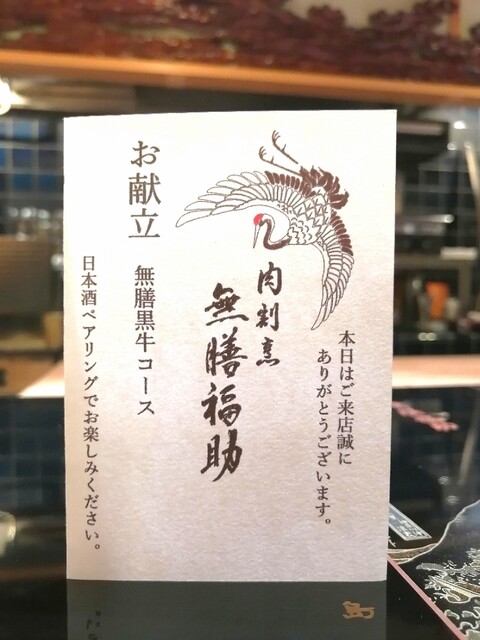 本日はご来店誠に
ありがとうございます。
肉割烹
無膳福助
お献立
無膳黒牛コース
日本酒ペアリングでお楽しみください。